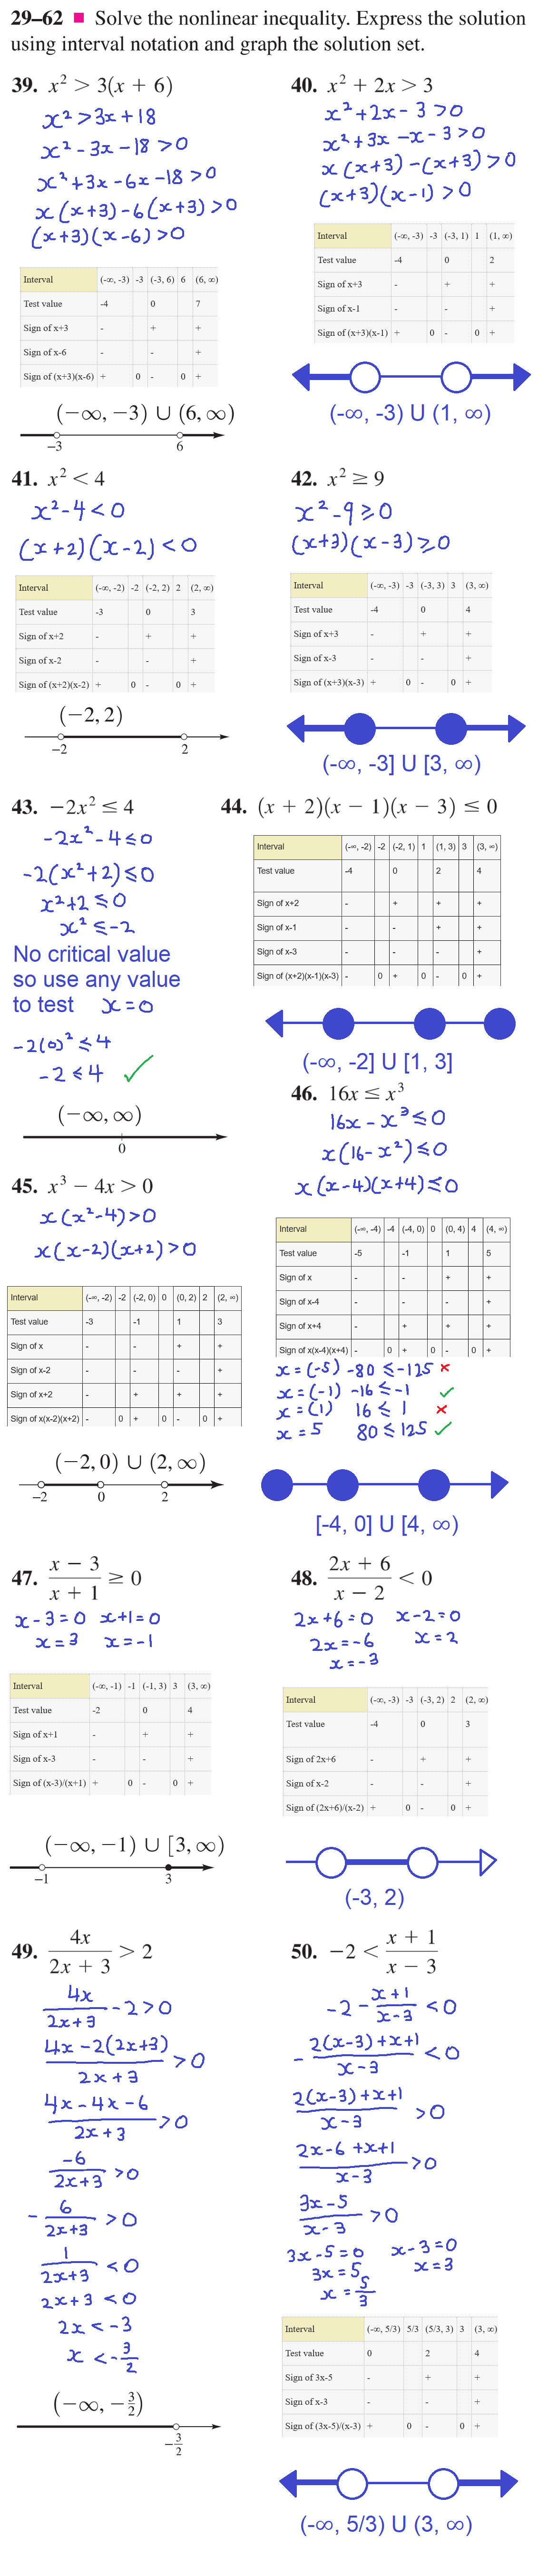 29–62 ■ Solve the nonlinear inequality. Express the solution
using interval notation and graph the solution set.
39. x² > 3(x + 6)
x² > 3x + 18
x² - 3x - 18 > 0
x² + 3x - 6x - 18 > 0
x(x+3) - 6(x+3) > 0
(x+3)(x-6) > 0
Interval (-∞, -3) -3 (-3, 6) 6 (6, ∞)
Test value -4 0 7
Sign of x+3 - + +
Sign of x-6 - - +
Sign of (x+3)(x-6) + 0 - 0 +
(−∞, −3) ∪ (6, ∞)
−3 6
40. x² + 2x > 3
x² + 2x - 3 > 0
x² + 3x - x - 3 > 0
x(x+3) - (x+3) > 0
(x+3)(x-1) > 0
Interval (-∞, -3) -3 (-3, 1) 1 (1, ∞)
Test value -4 0 2
Sign of x+3 - + +
Sign of x-1 - - +
Sign of (x+3)(x-1) + 0 - 0 +
(-∞, -3) U (1, ∞)
41. x² < 4
x² - 4 < 0
(x+2)(x-2) < 0
Interval (-∞, -2) -2 (-2, 2) 2 (2, ∞)
Test value -3 0 3
Sign of x+2 - + +
Sign of x-2 - - +
Sign of (x+2)(x-2) + 0 - 0 +
(−2, 2)
−2 2
42. x² ≥ 9
x² - 9 ≥ 0
(x+3)(x-3) ≥ 0
Interval (-∞, -3) -3 (-3, 3) 3 (3, ∞)
Test value -4 0 4
Sign of x+3 - + +
Sign of x-3 - - +
Sign of (x+3)(x-3) + 0 - 0 +
(-∞, -3] U [3, ∞)
43. −2x² ≤ 4
-2x² - 4 ≤ 0
-2(x² + 2) ≤ 0
x² + 2 ≤ 0
x² ≤ -2
No critical value
so use any value
to test x = 0
-2(0)² ≤ 4
-2 ≤ 4 ✓
(−∞, ∞)
0
44. (x + 2)(x − 1)(x − 3) ≤ 0
Interval (-∞, -2) -2 (-2, 1) 1 (1, 3) 3 (3, ∞)
Test value -4 0 2 4
Sign of x+2 - + + +
Sign of x-1 - - + +
Sign of x-3 - - - +
Sign of (x+2)(x-1)(x-3) - 0 + 0 - 0 +
(-∞, -2] U [1, 3]
46. 16x ≤ x³
16x - x³ ≤ 0
x(16 - x²) ≤ 0
x(x-4)(x+4) ≤ 0
Interval (-∞, -4) -4 (-4, 0) 0 (0, 4) 4 (4, ∞)
Test value -5 -1 1 5
Sign of x - - + +
Sign of x-4 - - - +
Sign of x+4 - + + +
Sign of x(x-4)(x+4) - 0 + 0 - 0 +
x = (-5) -80 ≤ -125 ×
x = (-1) -16 ≤ -1 ✓
x = (1) 16 ≤ 1 ×
x = 5 80 ≤ 125 ✓
[-4, 0] U [4, ∞)
45. x³ − 4x > 0
x(x² - 4) > 0
x(x-2)(x+2) > 0
Interval (-∞, -2) -2 (-2, 0) 0 (0, 2) 2 (2, ∞)
Test value -3 -1 1 3
Sign of x - - + +
Sign of x-2 - - - +
Sign of x+2 - + + +
Sign of x(x-2)(x+2) - 0 + 0 - 0 +
(−2, 0) ∪ (2, ∞)
−2 0 2
47. (x − 3)/(x + 1) ≥ 0
x - 3 = 0 x + 1 = 0
x = 3 x = -1
Interval (-∞, -1) -1 (-1, 3) 3 (3, ∞)
Test value -2 0 4
Sign of x+1 - + +
Sign of x-3 - - +
Sign of (x-3)/(x+1) + 0 - 0 +
(−∞, −1) ∪ [3, ∞)
−1 3
48. (2x + 6)/(x − 2) < 0
2x + 6 = 0 x - 2 = 0
2x = -6 x = 2
x = -3
Interval (-∞, -3) -3 (-3, 2) 2 (2, ∞)
Test value -4 0 3
Sign of 2x+6 - + +
Sign of x-2 - - +
Sign of (2x+6)/(x-2) + 0 - 0 +
(-3, 2)
49. 4x/(2x + 3) > 2
4x/(2x+3) - 2 > 0
(4x - 2(2x+3))/(2x+3) > 0
(4x - 4x - 6)/(2x+3) > 0
-6/(2x+3) > 0
- 6/(2x+3) > 0
1/(2x+3) < 0
2x + 3 < 0
2x < -3
x < -3/2
(−∞, −3/2)
−3/2
50. −2 < (x + 1)/(x − 3)
-2 - (x+1)/(x-3) < 0
- (2(x-3)+x+1)/(x-3) < 0
(2(x-3)+x+1)/(x-3) > 0
(2x-6+x+1)/(x-3) > 0
(3x-5)/(x-3) > 0
3x - 5 = 0 x - 3 = 0
3x = 5 x = 3
x = 5/3
Interval (-∞, 5/3) 5/3 (5/3, 3) 3 (3, ∞)
Test value 0 2 4
Sign of 3x-5 - + +
Sign of x-3 - - +
Sign of (3x-5)/(x-3) + 0 - 0 +
(-∞, 5/3) U (3, ∞)